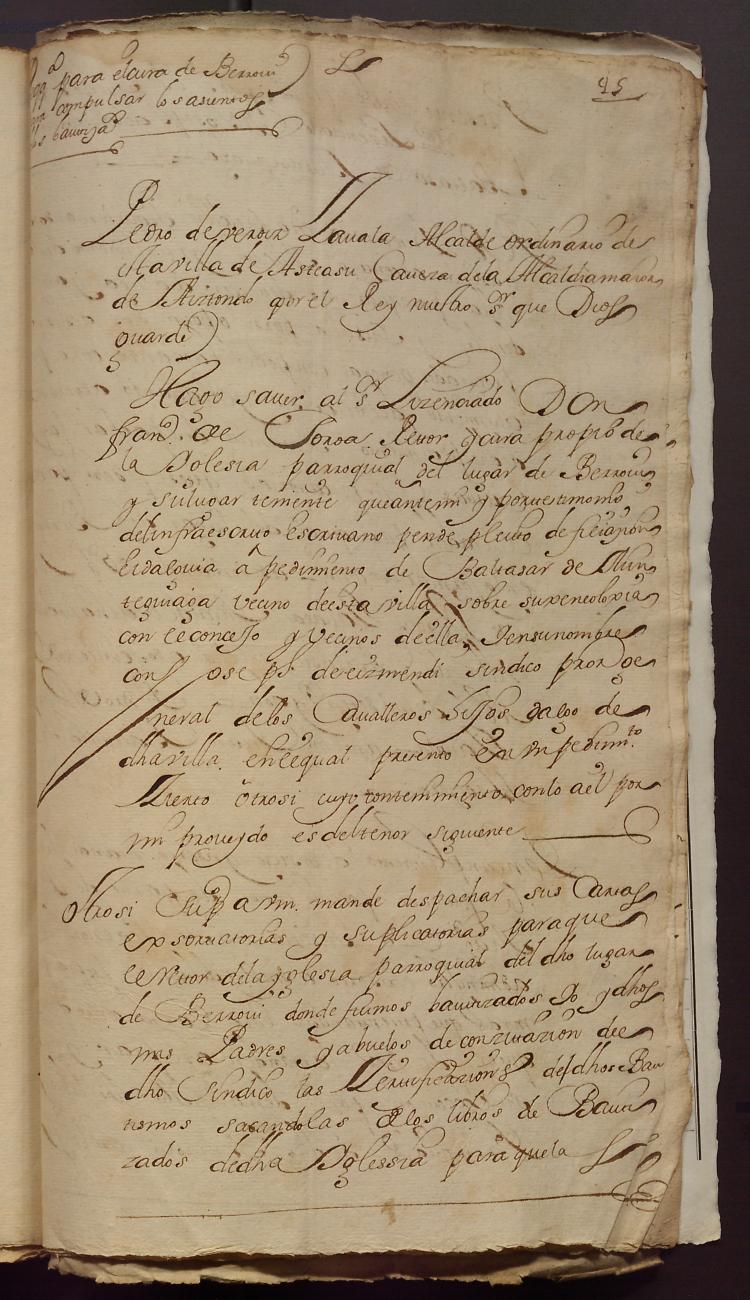 para el cura de Berrovi
compulsar los asientos
45
Pedro de veroiz Zauala Alcalde ordinario de
esta villa de Asteasu Caueza dela Alcaldia maior
de Aiztondo por el Rey nuestro sr que Dios
guarde
Hago sauer al sr Lizenciado Don
franco. de Soroa Retor y cura propio de
la Iglesia parroquial del lugar de Berrovi
y su lugar teniente que antemi y por testimonio
del infraescrito escriuano pende pleito de filiazion
hidalguia a pedimiento de Baltasar de
vecino de esta villa sobre su
con el concejo y vecinos de ella y en su nombre
con Joseph de eizmendi sindico pror Ge
neral de los Caualleros hijos dalgo de
dha villa. en el qual presento en un pedimto.
Zierto otrosi cuyo contenimiento con lo a el por
mi proueydo es del tenor siguiente
Otrosi Supco a vm. mande despachar sus Cartas
exsortatorias y suplicatorias para que
el Retor de la yglesia parroquial del dho lugar
de Berrovi donde fuimos bautizados Yo y dhos
mis Padres y abuelos de con zitazion de
dho Sindico las Zertificaziones de dhos Bau
tismos sacandolas de los libros de Bauti
zados de dha Yglessia para que la